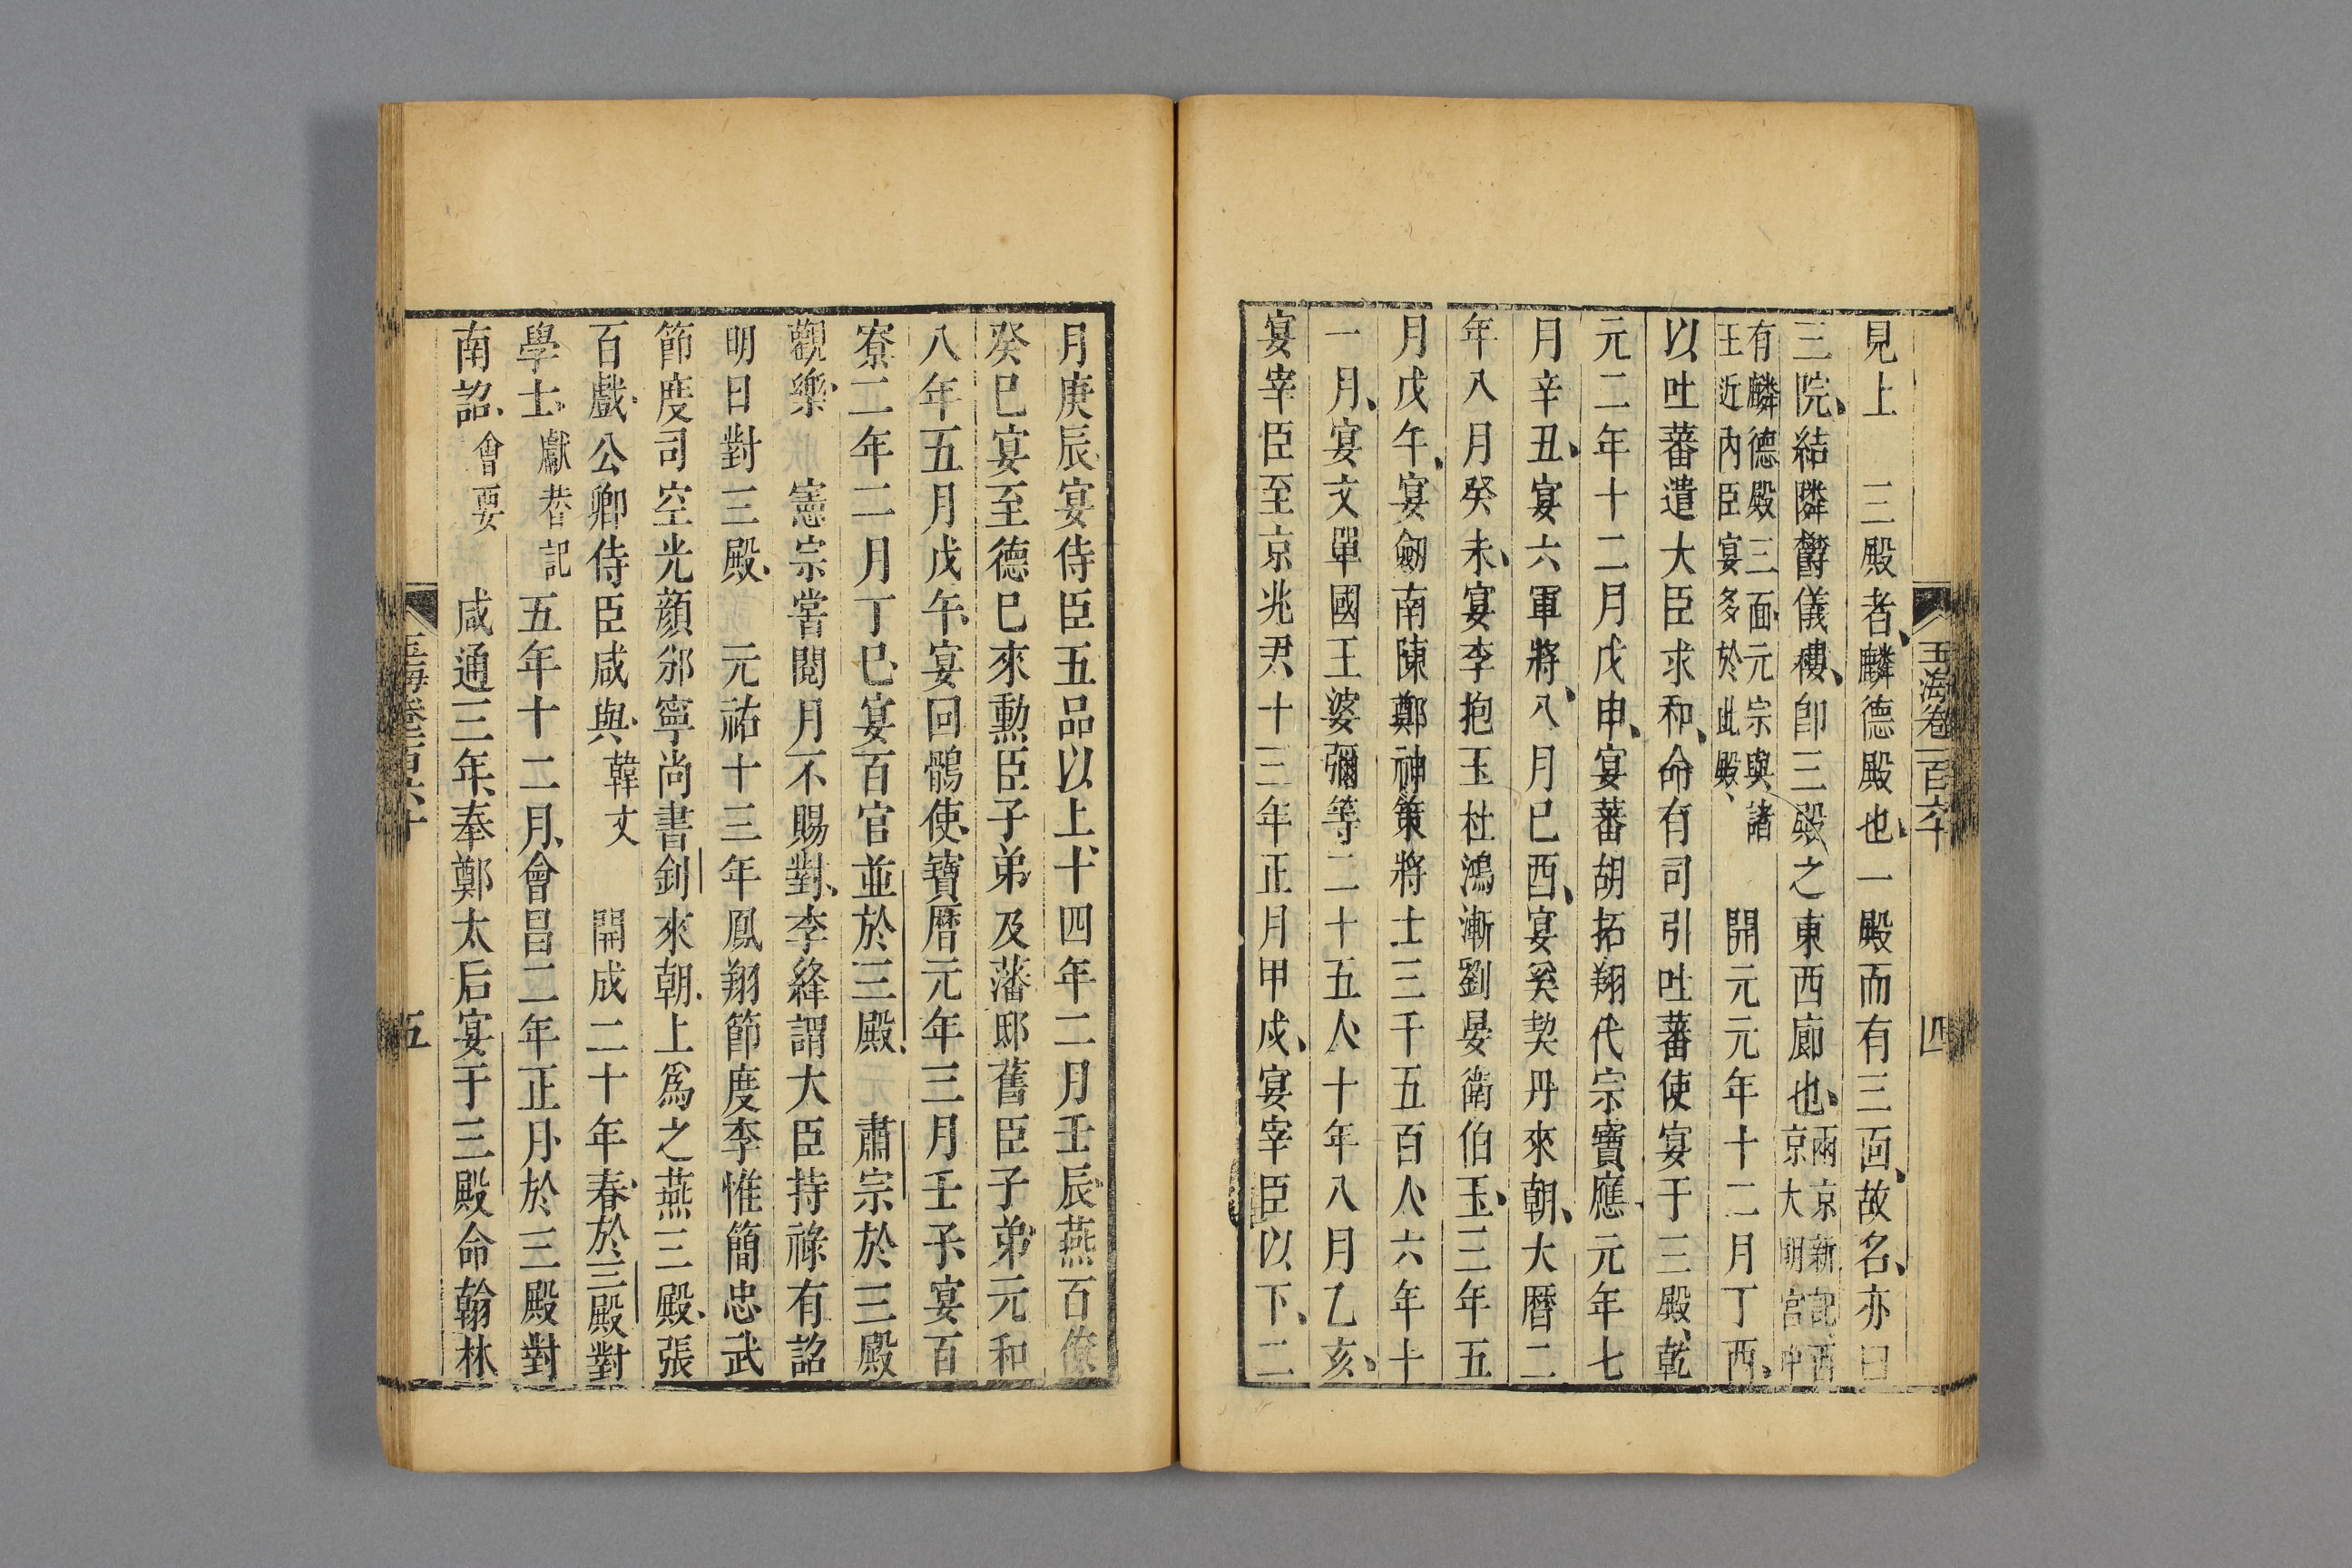 玉海卷一百六十
四
見上　三殿者、麟德殿也、一殿而有三面、故名、亦曰
三院、結隣鬱儀樓、卽三殿之東西廊也、兩京新記、西京大明宮中
有麟德殿三面、元宗與諸王近內臣宴多於此殿、　開元元年十二月丁酉、
以吐蕃遣大臣求和、命有司引吐蕃使宴于三殿、乾
元二年十二月戊申、宴蕃胡拓翔代宗寶應元年七
月辛丑、宴六軍將、八月巳酉、宴奚契丹來朝、大曆二
年八月癸未、宴李抱玉杜鴻漸劉晏衛伯玉、三年五
月戊午、宴劒南陳鄭神策將士三千五百人、六年十
一月、宴文單國王婆彌等二十五人、十年八月乙亥、
宴宰臣至京兆尹、十三年正月甲戍、宴宰臣以下、二
月庚辰、宴侍臣五品以上、十四年二月壬辰、燕百僚
癸巳宴至德巳來勳臣子弟、及藩邸舊臣子弟、元和
八年五月戊午、宴回鶻使、寶曆元年三月壬子、宴百
寮二年二月丁巳、宴百官並於三殿、　肅宗於三殿
觀樂、　憲宗嘗閱月不賜對、李絳謂大臣持祿有詔
明日對三殿、　元祐十三年鳳翔節度李惟簡忠武
節度司空光顔邠寧尚書釗來朝、上爲之燕三殿、張
百戲、公卿侍臣咸與、韓文　開成二十年春、於三殿對
學士、獻替記　五年十二月、會昌二年正月、於三殿對
南詔、會要　咸通三年、奉鄭太后宴于三殿命翰林
玉海卷一百六十
五